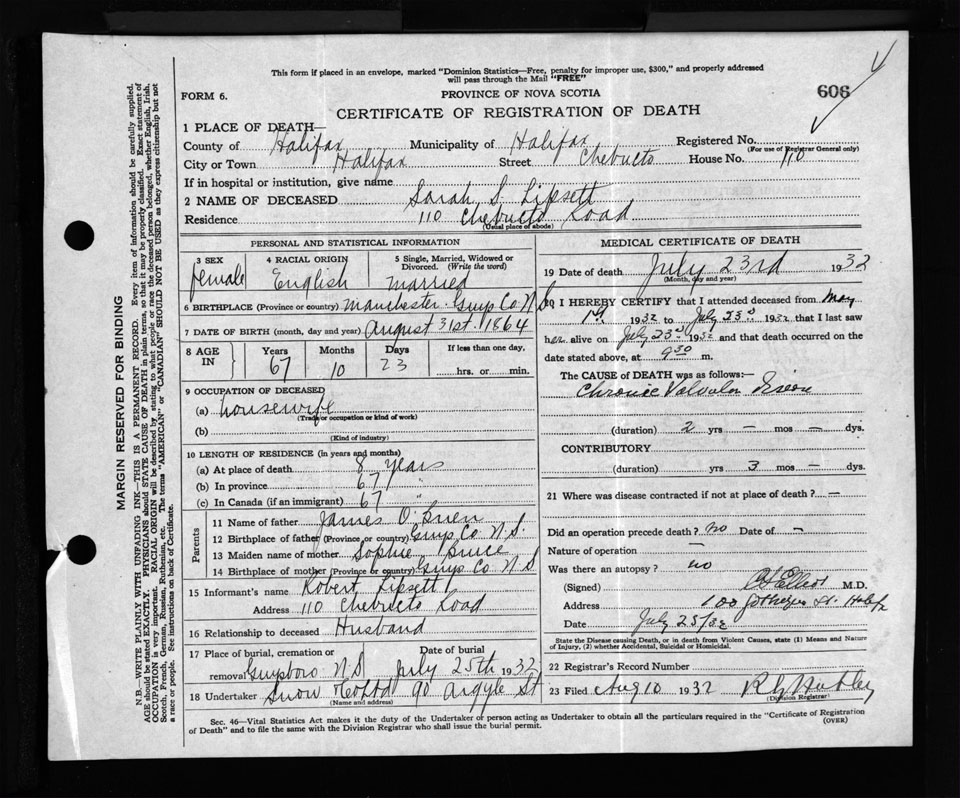 This form if placed in an envelope, marked "Dominion Statistics—Free, penalty for improper use, $300," and properly addressed
will pass through the Mail "FREE"
FORM 6.
PROVINCE OF NOVA SCOTIA
606
CERTIFICATE OF REGISTRATION OF DEATH
1 PLACE OF DEATH—
County of Halifax Municipality of Halifax Registered No.
(For use of Registrar General only)
City or Town Halifax Street Chebucto House No. 110
If in hospital or institution, give name
2 NAME OF DECEASED Sarah S. Lipsett
Residence 110 Chebucto Road
(Usual place of abode)
PERSONAL AND STATISTICAL INFORMATION
3 SEX female
4 RACIAL ORIGIN English
5 Single, Married, Widowed or Divorced. (Write the word) married
6 BIRTHPLACE (Province or country) Manchester Guys Co N.S
7 DATE OF BIRTH (month, day and year) August 31st. 1864
8 AGE IN Years 67 Months 10 Days 23 If less than one day, hrs. or min.
9 OCCUPATION OF DECEASED
(a) housewife
(Trade or occupation or kind of work)
(b)
(Kind of industry)
10 LENGTH OF RESIDENCE (in years and months)
(a) At place of death 8 years
(b) In province 67 "
(c) In Canada (if an immigrant) 67 "
Parents
11 Name of father James O'Brien
12 Birthplace of father (Province or country) Guys Co N.S.
13 Maiden name of mother Sophie Bruce
14 Birthplace of mother (Province or country) Guys Co N S
15 Informant's name Robert Lipsett
Address 110 Chebucto Road
16 Relationship to deceased Husband
17 Place of burial, cremation or removal Guysboro N.S Date of burial July 25th 1932
18 Undertaker Snow & Co Ltd 90 Argyle St
(Name and address)
MEDICAL CERTIFICATE OF DEATH
19 Date of death July 23rd 1932
(Month, day and year)
20 I HEREBY CERTIFY that I attended deceased from May
1st 1932 to July 23rd 1932 that I last saw
her alive on July 23rd 1932 and that death occurred on the
date stated above, at 9 30 m.
The CAUSE of DEATH was as follows:
Chronic Valvular Disease
(duration) 2 yrs — mos — dys.
CONTRIBUTORY
(duration) yrs 3 mos — dys.
21 Where was disease contracted if not at place of death? —
Did an operation precede death? no Date of —
Nature of operation —
Was there an autopsy? no
(Signed) Elliot M.D.
Address 100 St. Halifx
Date July 25/32
State the Disease causing Death, or in death from Violent Causes, state (1) Means and Nature
of Injury, (2) whether Accidental, Suicidal or Homicidal.
22 Registrar's Record Number
23 Filed Aug 10 1932
(Division Registrar)
Sec. 46—Vital Statistics Act makes it the duty of the Undertaker or person acting as Undertaker to obtain all the particulars required in the "Certificate of Registration
of Death" and to file the same with the Division Registrar who shall issue the burial permit.
(OVER)
MARGIN RESERVED FOR BINDING
N.B.—WRITE PLAINLY WITH UNFADING INK—THIS IS A PERMANENT RECORD. Every item of information should be carefully supplied.
AGE should be stated EXACTLY. PHYSICIANS should STATE CAUSE OF DEATH in plain terms, so that it may be properly classified. Exact statement of
OCCUPATION is very important. RACIAL ORIGIN will be described by stating to what people or race the deceased person belonged, whether English, Irish,
Scotch, French, German, Russian, Ruthenian, etc. The terms "AMERICAN" or "CANADIAN" SHOULD NOT BE USED as they express citizenship but not
a race or people. See instructions on back of Certificate.